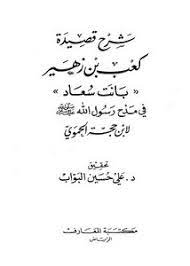 شرح قصيدة
كعب بن زهير
« بانت سعاد »
في مدح رسول الله ﷺ
لابن حجة الحموي
تحقيق
د. علي حسين البواب
مكتبة المعارف
الرياض